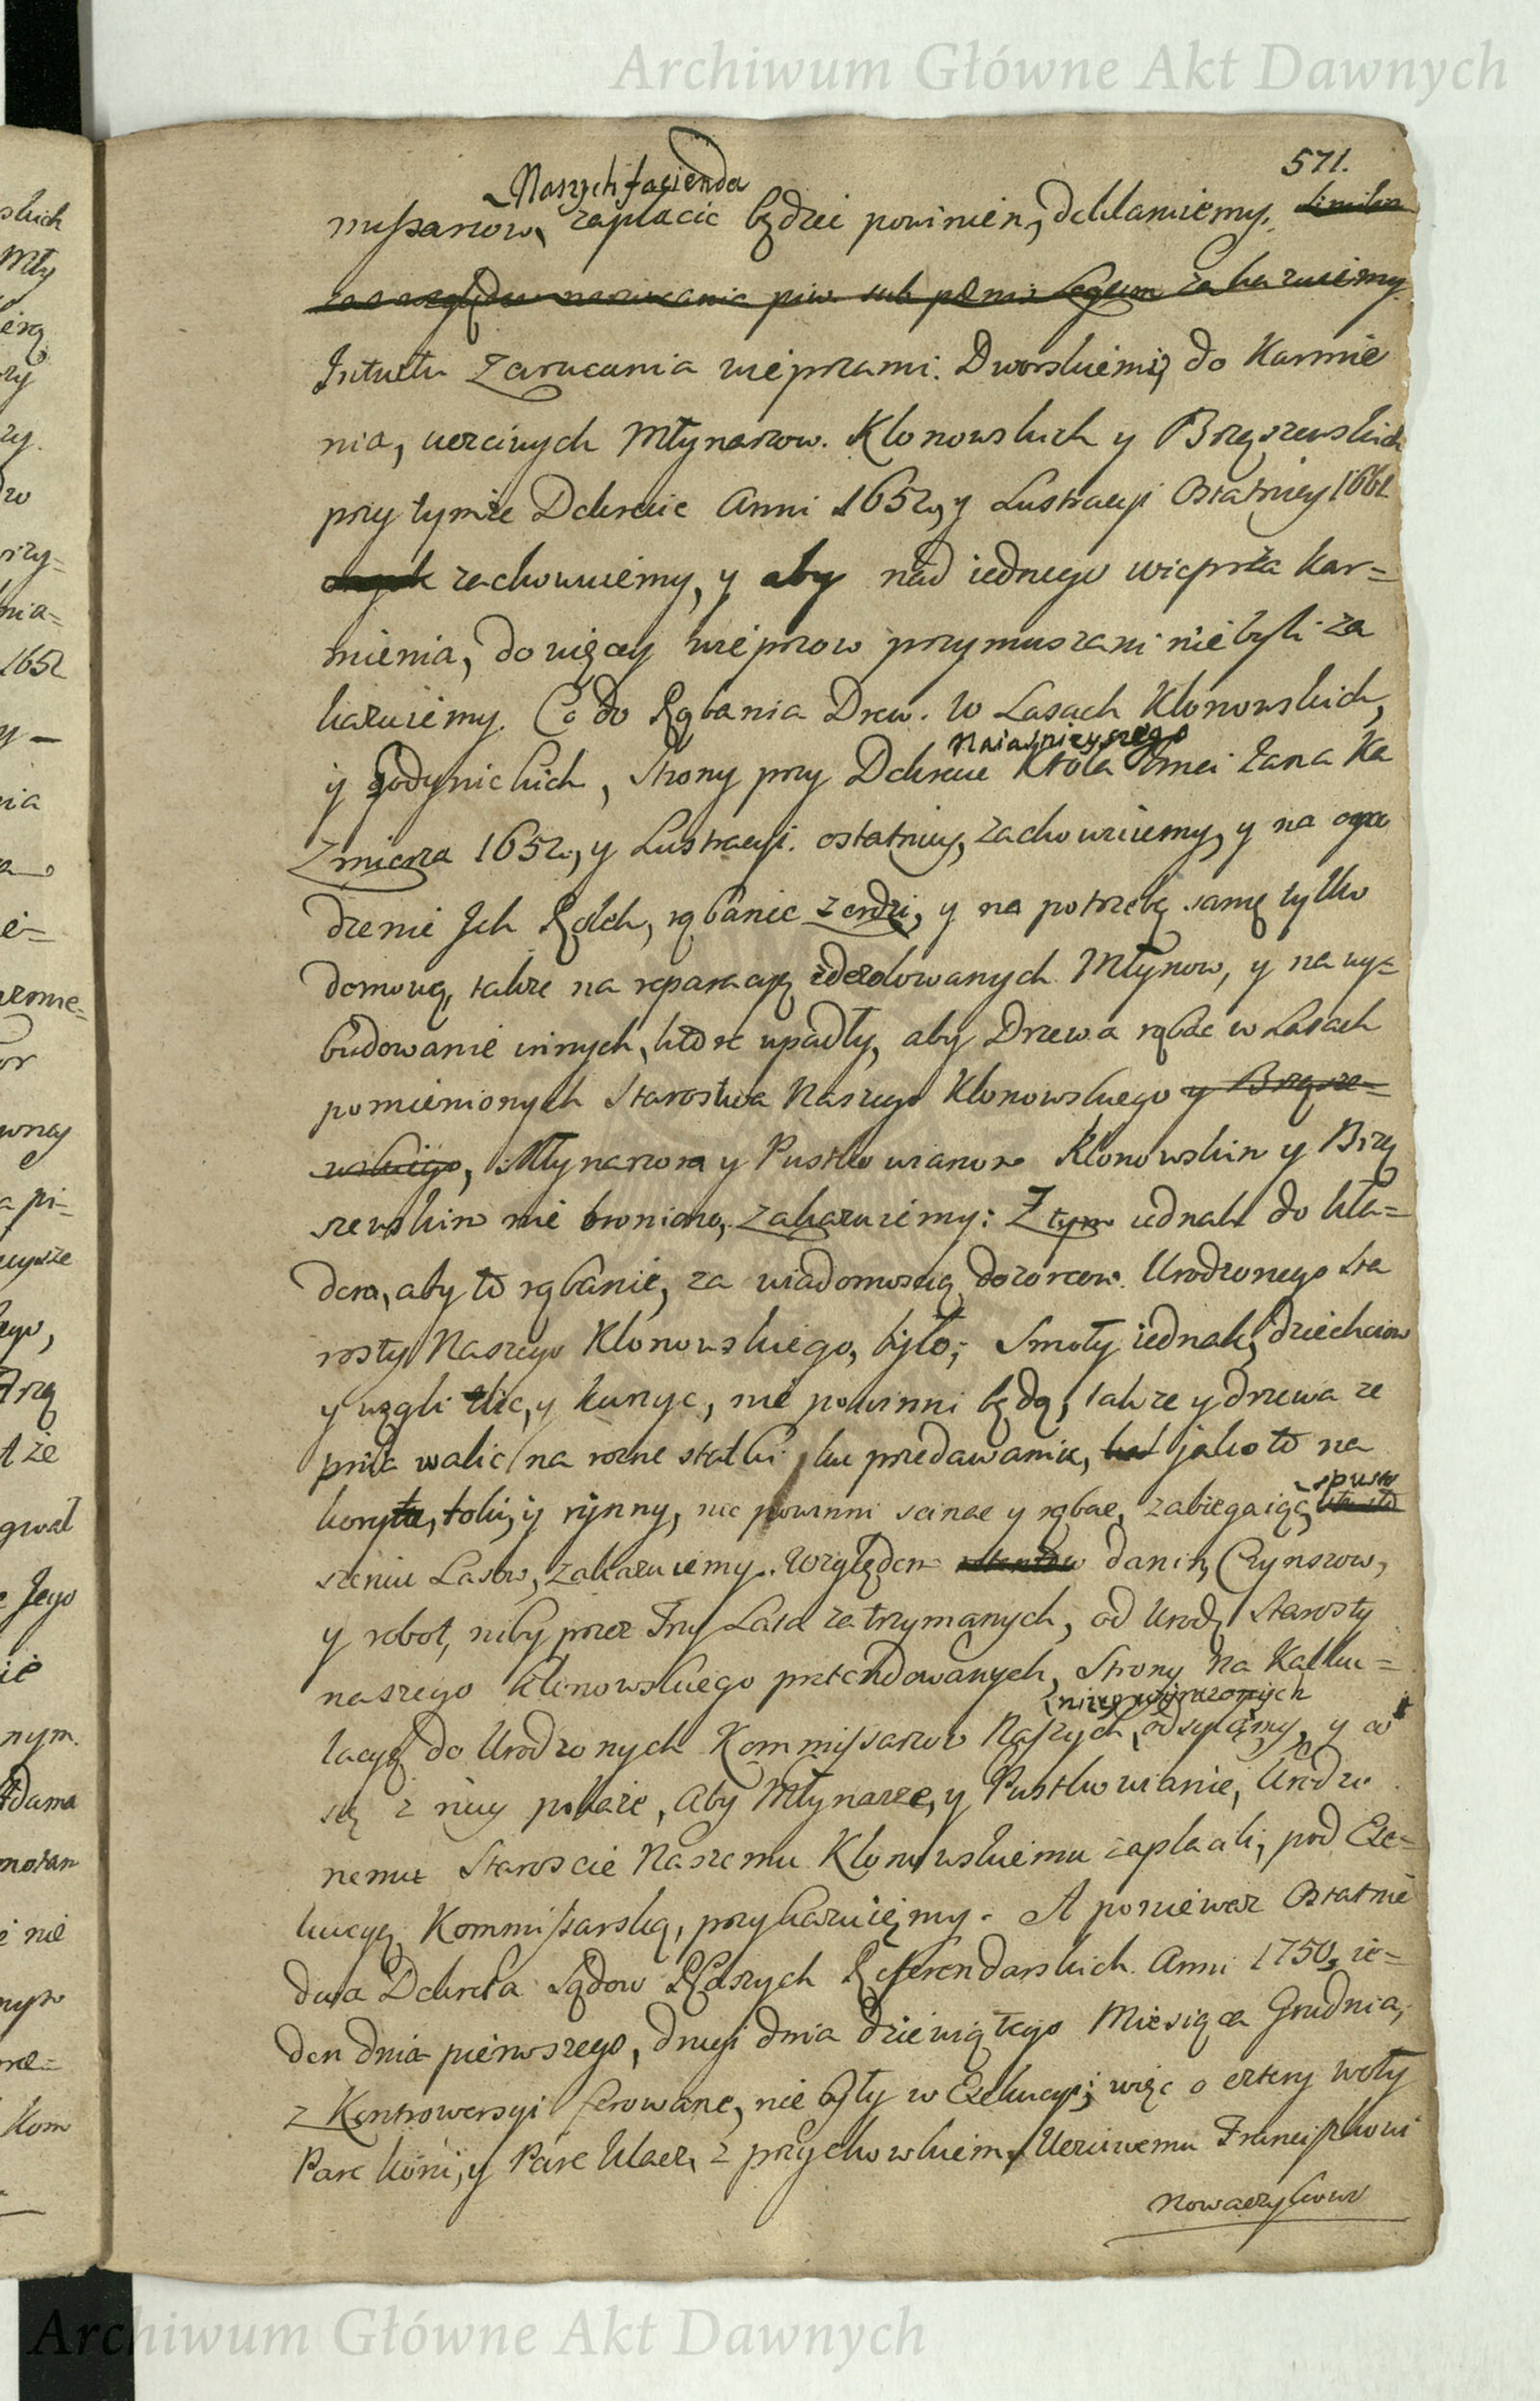 Archiwum Główne Akt Dawnych
571.
Naszych facienda
missarzow, zapłacic będzei powinien, deklaruiemy,
narzucania piw sub pœnis Legum zakazuiemy.
Intuitu Zarzucania wieprzami Dworskiemi, do Karmie
nia, uczciwych Młynarzow Klonowskich y Brzęszewskich
przy tymże Dekrecie Anni 1652, y Lustracyi Ostatniey 1661
zachowuiemy, y aby nad iednego wieprza kar=
mienia, do więcey wieprzow przymuszani niebyli za
kazuiemy. Co do Rąbania Drew w Lasach Klonowskich,
Naiaśnieyszego
y Godynickich, Strony przy Dekrecie Krola Jmci Jana Ka
Zmierza 1652, y Lustracyi ostatniey, zachowuiemy, y na ogro
dzenie Ich Rolek, rąbanie żerdzi, y na potrzebę samę tylko
domową, także na reparacyą zdezolowanych Młynow, y na wy=
budowanie innych, ktore upadły, aby Drzewa rąbac w Lasach
pomienionych Starostwa Naszego Klonowskiego y Brzęsze=
wskiego, Młynarzom y Pustkowianom Klonowskim y Brzę
szewskim nie broniono, zakazuiemy: Z tym iednak do kła=
dem, aby to rąbanie, za wiadomoscią dozorcow Urodzonego Sta
rosty Naszego Klonowskiego, było; Smoły iednak, dziekciow
y węgli y kurzyc, nie powinni będą, także y drzewa ze
pnia walic na rozne statki, ku przedawaniu, jako to na
koryta, toki, y rynny, nie powinni scinac y rąbac, zabiegaiąc,
spusto
szeniu Lasow, zakazuiemy. Względem danin, Czynszow,
y robot, niby przez Trzy Lata zatrzymanych, od Urodz. Starosty
naszego Klonowskiego pretendowanych, Strony na Kalku=
niżey wyrazonych
lacyą do Urodzonych Kommissarzow Naszych, odsyłamy, y co
się z niey pokaże, Aby Młynarze, y Pustkowianie, Urodzo
nemu Staroscie Naszemu Klonowskiemu zapłacili, pod Exe=
kucyą Kommissarską, przykazuiemy. A ponieważ Ostatnie
dwa Dekreta Sądow Naszych Referendarskich Anni 1750, ie=
den dnia pierwszego, drugi dnia dziewiątego Miesiąca Grudnia,
z Kontrowersyi ferowane, nie były w Exekucyi; więc o cztery woły
Parę koni, y Parę klacz, z przychowkiem, Uczciwemu Franciszkowi
Nowaczykowi
Archiwum Główne Akt Dawnych